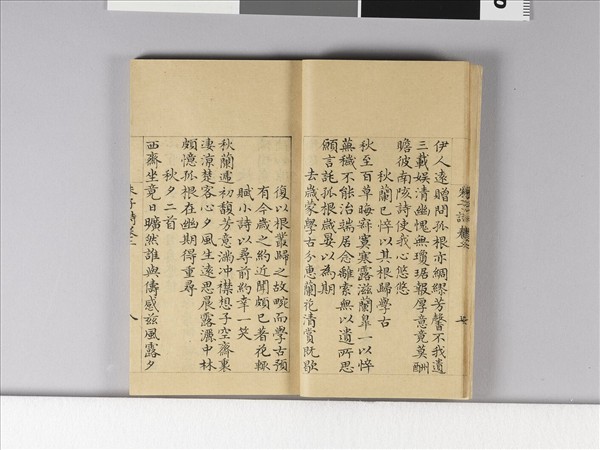 伊人遠贈問孤根亦綢繆芳馨不我遺
三載娛清幽愧無瓊琚報厚意竟莫酬
瞻彼南陔詩使我心悠悠
秋蘭已悴以其根歸學古
秋至百草晦寂寞寒露滋蘭皋一以悴
蕪穢不能治端居念離索無以遺所思
願言託孤根歲晏以為期
去歲蒙學古分惠蘭花清賞既歇
復以根叢歸之故畹而學古預
有今歲之約近聞頗已著花輒
賦小詩以尋前約幸一笑
秋蘭遞初馥芳意滿冲襟想子空齋裏
淒涼楚客心夕風生遠思晨露灑中林
頗憶孤根在幽期得重尋
秋夕二首
西齋坐竟日曠然誰與儔感茲風露夕